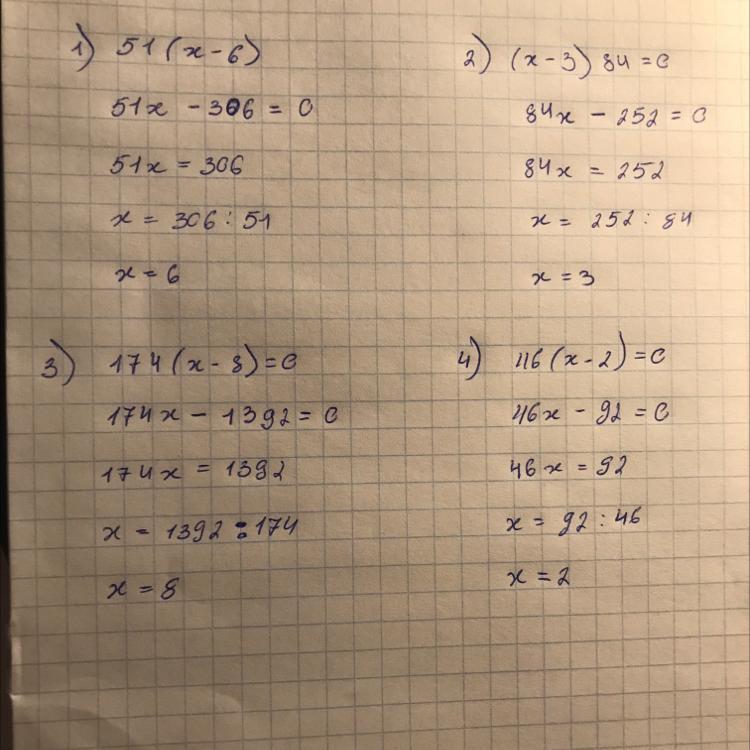 1) 51(x-6)
51x - 306 = 0
51x = 306
x = 306 : 51
x = 6
2) (x-3) 84 = 0
84x - 252 = 0
84x = 252
x = 252 : 84
x = 3
3) 174(x-8)=0
174x - 1392 = 0
174x = 1392
x = 1392 : 174
x = 8
4) 46(x-2)=0
46x - 92 = 0
46x = 92
x = 92 : 46
x = 2